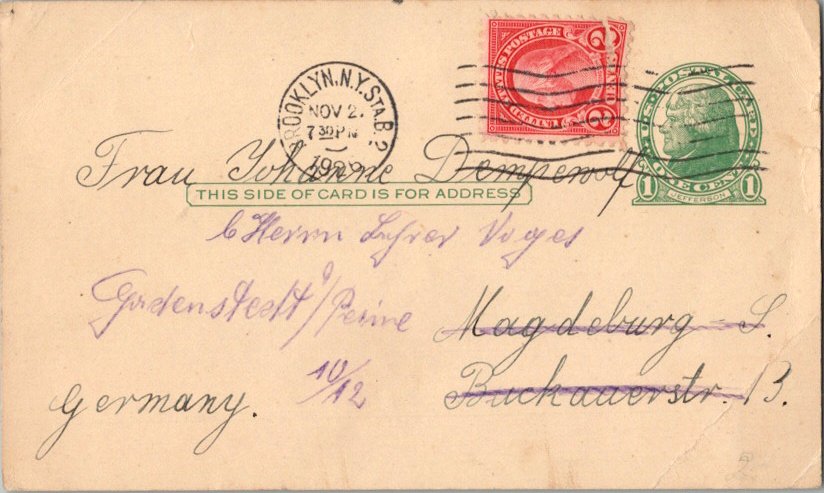 BROOKLYN, N.Y. STA. B. 2
NOV 2
7 30 PM
192
UNITED STATES POSTAGE
2 2
U.S. POSTAL CARD
ONE CENT
1 1
JEFFERSON
Frau Johanne Dempewolf
THIS SIDE OF CARD IS FOR ADDRESS
b/Herrn Lehrer Voges
Gadenstedt/Peine
Magdeburg - S.
10/12
Buckauerstr. 13.
Germany.